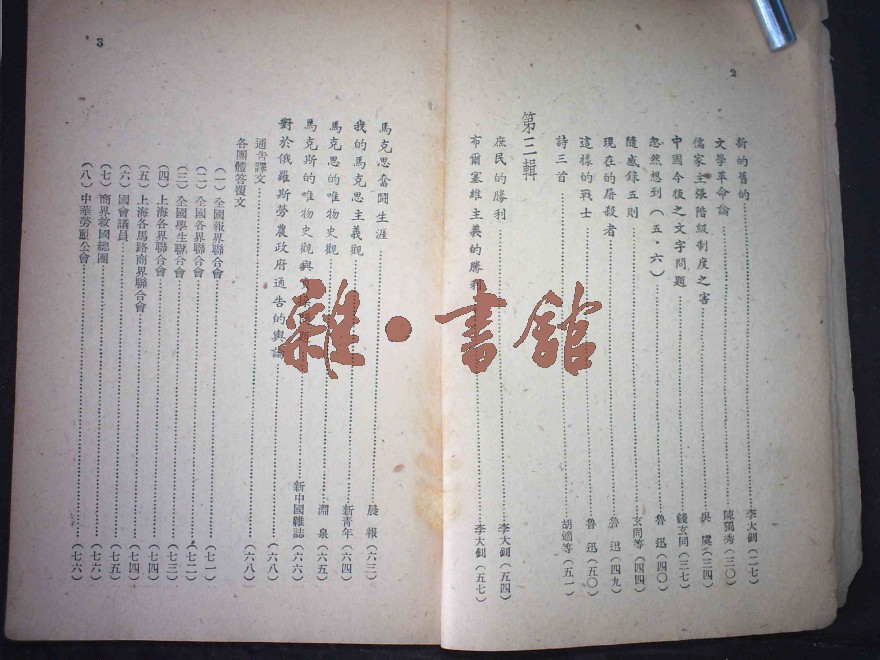 2
新的舊的……李大釗(二七)
文學革命論……陳獨秀(三〇)
儒家主張階級制度之害……吳虞(三四)
中國今後之文字問題……錢玄同(三七)
忽然想到(五·六)……魯迅(四〇)
隨感錄五則……玄同等(四四)
現在的屠殺者……魯迅(四九)
這樣的戰士……魯迅(五〇)
詩三首……胡適等(五一)
第三輯
庶民的勝利……李大釗(五四)
布爾塞維主義的勝利……李大釗(五七)
3
馬克思奮鬪生涯……晨報(六三)
我的馬克思主義觀……新青年(六四)
馬克思的唯物史觀……淵泉(六五)
馬克斯的唯物史觀與……新中國雜誌(六六)
對於俄羅斯勞農政府通告的輿論
通告譯文……(六八)
各團體答覆文……(六八)
(一)全國報界聯合會……(七一)
(二)全國各界聯合會……(七二)
(三)全國學生聯合會……(七三)
(四)上海各界聯合會……(七四)
(五)上海各馬路商界聯合會……(七四)
(六)國會議員……(七五)
(七)商界救國總團……(七六)
(八)中華勞働公會……(七六)
雜·書館